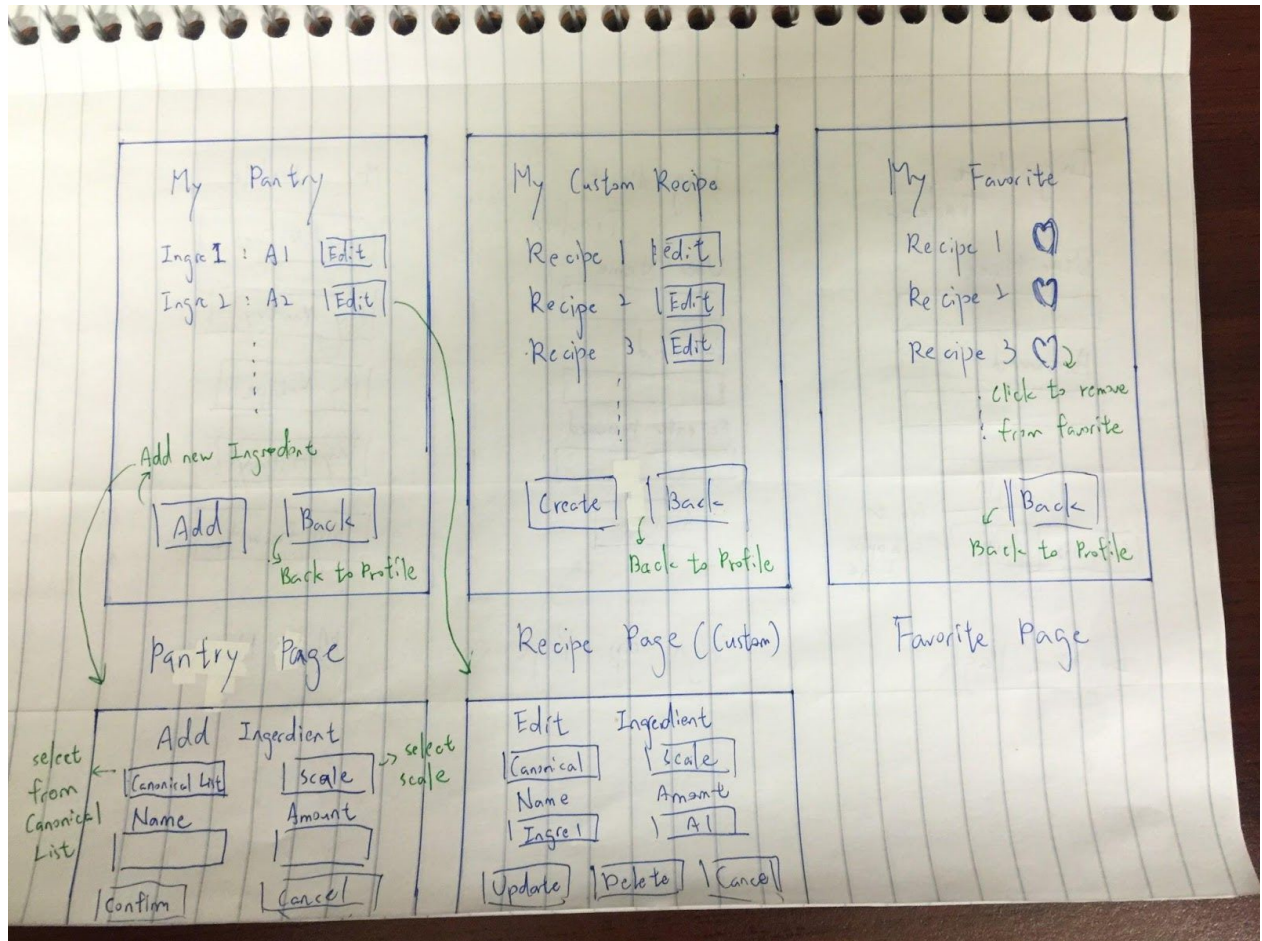 My Pantry
Ingre 1 : A1 Edit
Ingre 2 : A2 Edit
Add new Ingredont
Add Back
Back to Profile
Pantry Page
My Custom Recipe
Recipe 1 edit
Recipe 2 Edit
Recipe 3 Edit
Create Back
Back to Profile
Recipe Page (Custom)
My Favorite
Recipe 1
Recipe 2
Recipe 3
Click to remove
from favorite
Back
Back to Profile
Favorite Page
Add Ingerdient
select
from
Canonical
List
Canonical List Scale
select
scale
Name Amount
Confirm Cancel
Edit Ingredient
Canonical Scale
Name Amount
Ingre 1 A1
Update Delete Cancel